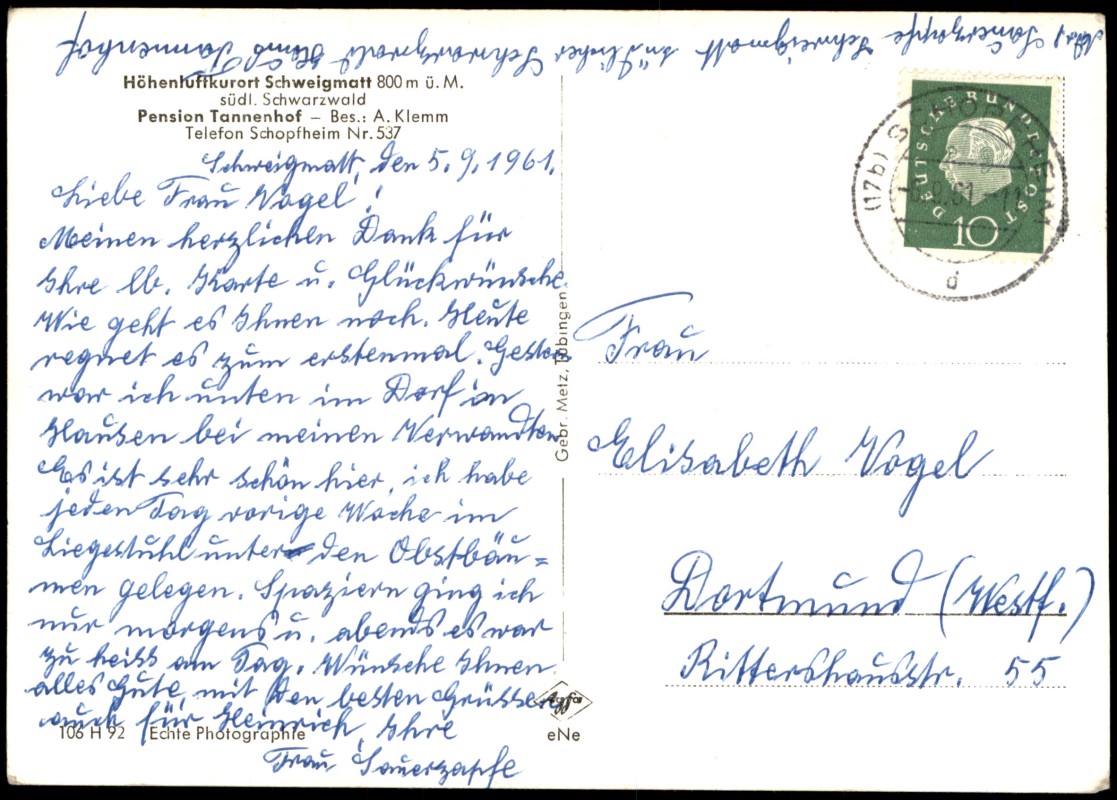 Abs. Sauerzapfe Schweigmatt südlicher Schwarzwald Haus Tannenhof
Höhenluftkurort Schweigmatt 800 m ü. M.
südl. Schwarzwald
Pension Tannenhof – Bes.: A. Klemm
Telefon Schopfheim Nr. 537
Schweigmatt, den 5.9.1961.
Liebe Frau Vogel!
Meinen herzlichen Dank für
Ihre lb. Karte u. Glückwünsche.
Wie geht es Ihnen noch. Heute
regnet es zum erstenmal. Gestern
war ich unten im Dorf in
Hausen bei meinen Verwandten
Es ist sehr schön hier, ich habe
jeden Tag vorige Woche im
Liegestuhl unter den Obstbäu=
men gelegen. Spaziern ging ich
nur morgens u. abends es war
zu heiss am Tag. Wünsche Ihnen
alles Gute, mit den besten Grüssen
auch für Heinrich, Ihre
Frau Sauerzapfe
106 H 92 Echte Photographie
Gebr. Metz, Tübingen
Agfa
eNe
DEUTSCHE BUNDESPOST
10
(17b) SCHOPFHEIM
d
Frau
Elisabeth Vogel
Dortmund (Westf.)
Rittershausstr. 55